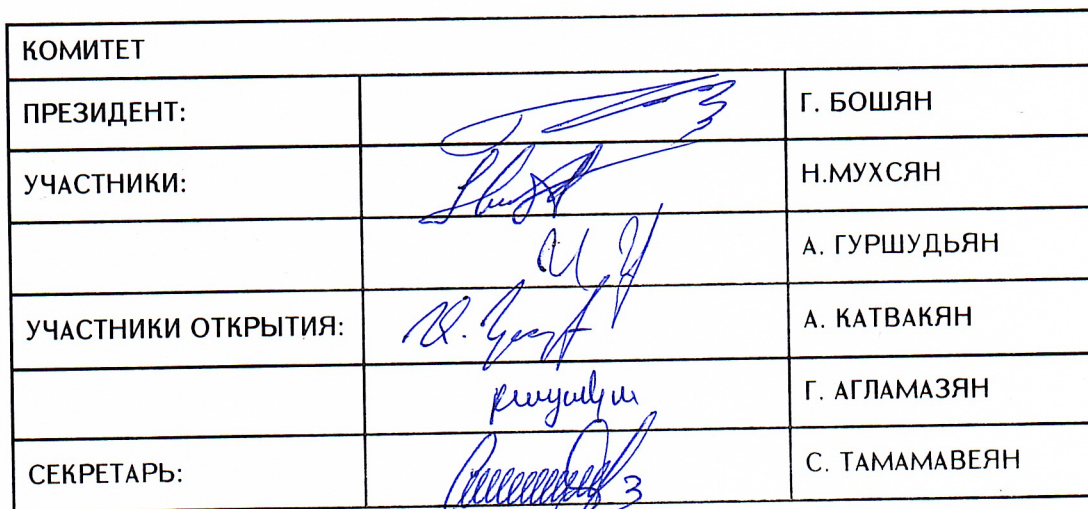 КОМИТЕТ
ПРЕЗИДЕНТ: Г. БОШЯН
УЧАСТНИКИ: Н.МУХСЯН
А. ГУРШУДЬЯН
УЧАСТНИКИ ОТКРЫТИЯ: А. КАТВАКЯН
Г. АГЛАМАЗЯН
СЕКРЕТАРЬ: С. ТАМАМАВЕЯН